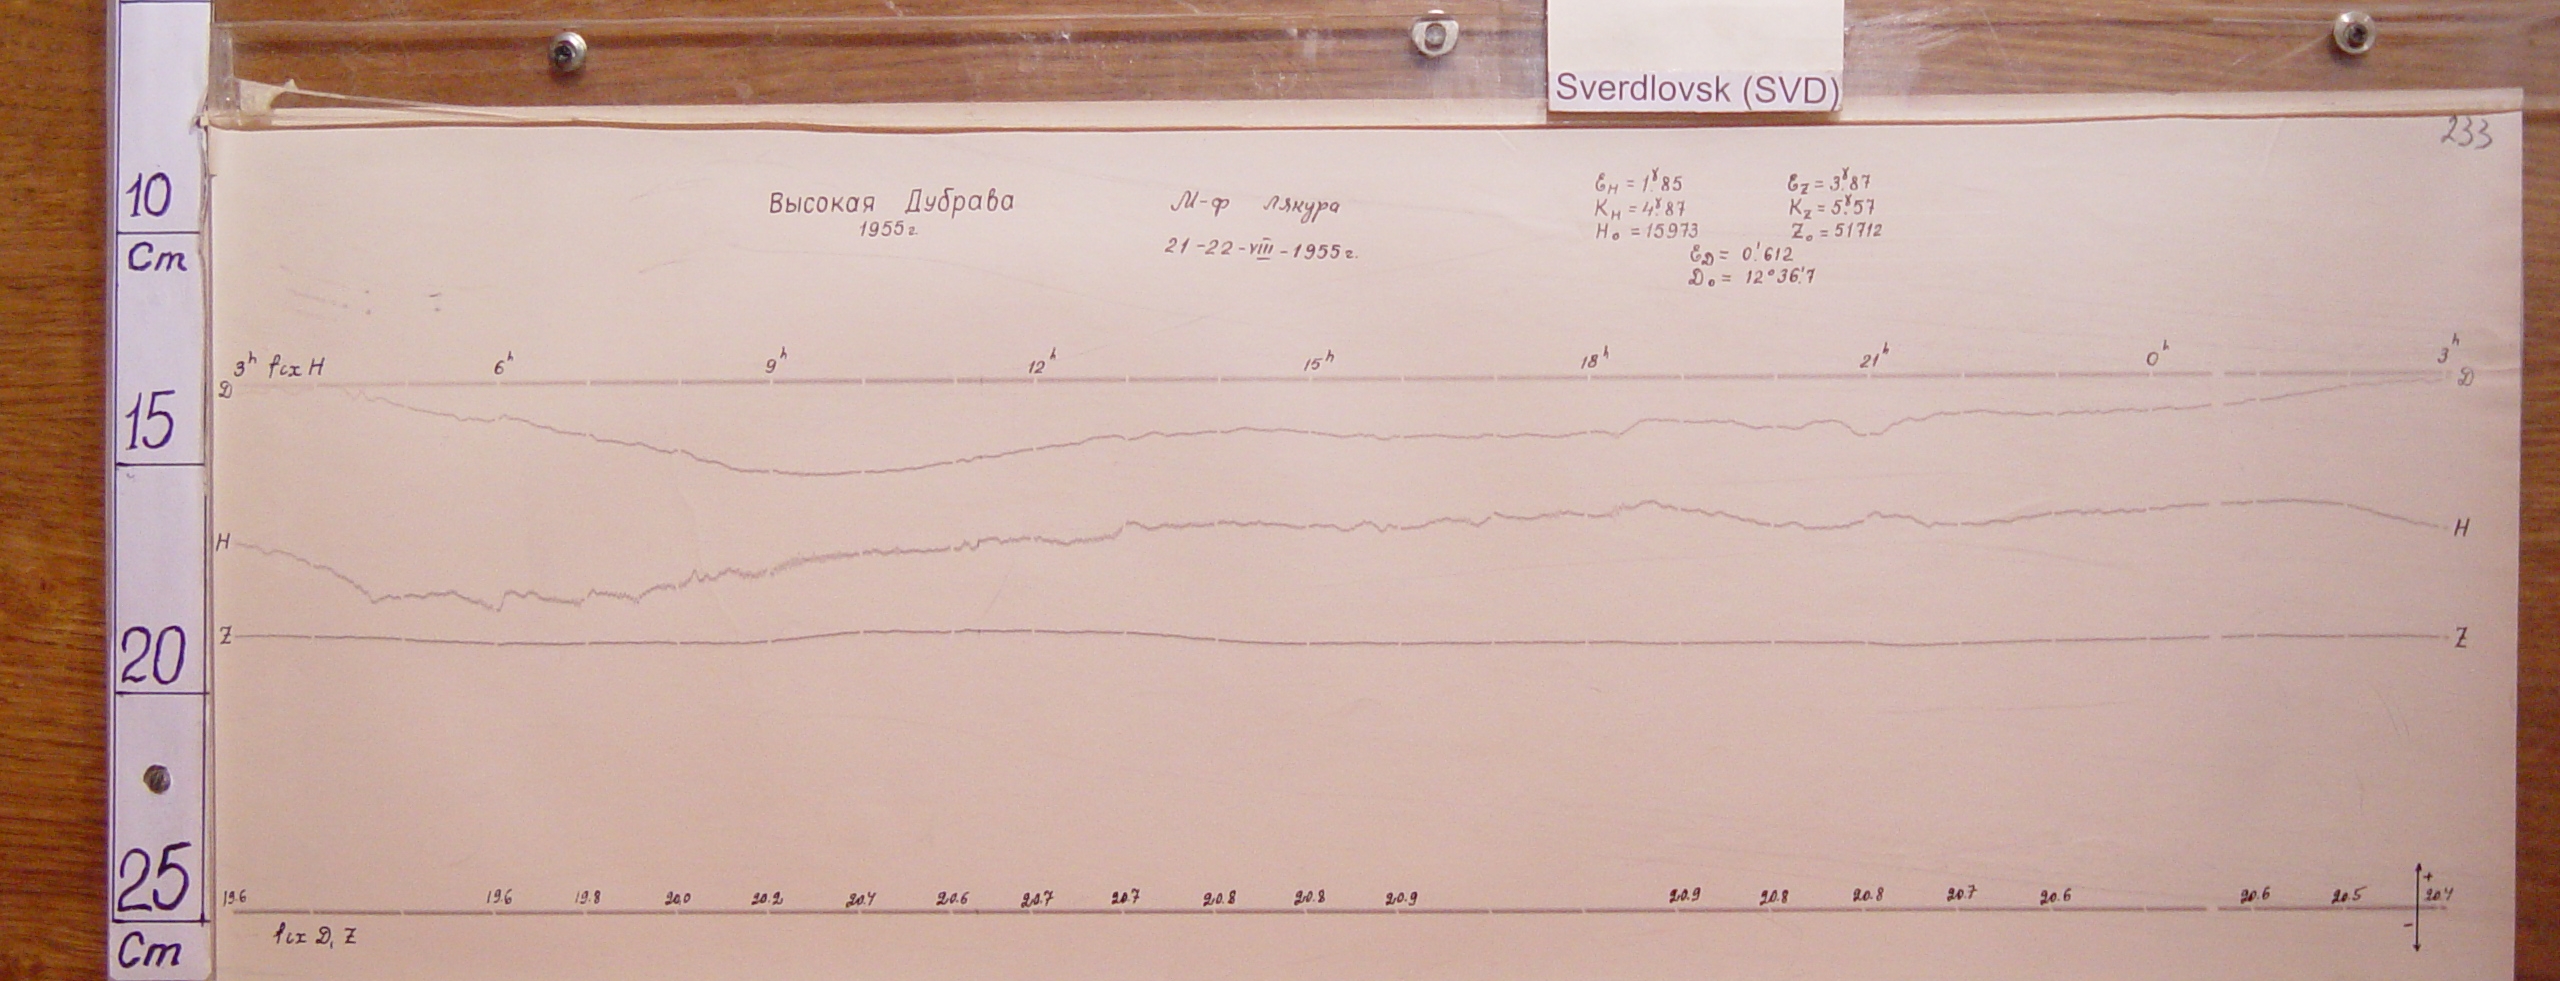 Sverdlovsk (SVD)
233
10
Cm
15
20
25
Cm
Высокая Дубрава
1955г.
М-ф Лякура
21-22-VIII-1955г.
Ɛн = 1ᵞ.85 Ɛz = 3ᵞ.87
Kн = 4ᵞ.87 Kz = 5ᵞ.57
H₀ = 15973 Z₀ = 51712
ƐD = 0'.612
D₀ = 12°36'.7
3h H 6h 9h 12h 15h 18h 21h 0h 3h
D D
H H
Z Z
19.6 19.6 19.8 20.0 20.2 20.4 20.6 20.7 20.7 20.8 20.8 20.9 20.9 20.8 20.8 20.7 20.6 20.6 20.5 20.4
+
-
D, Z